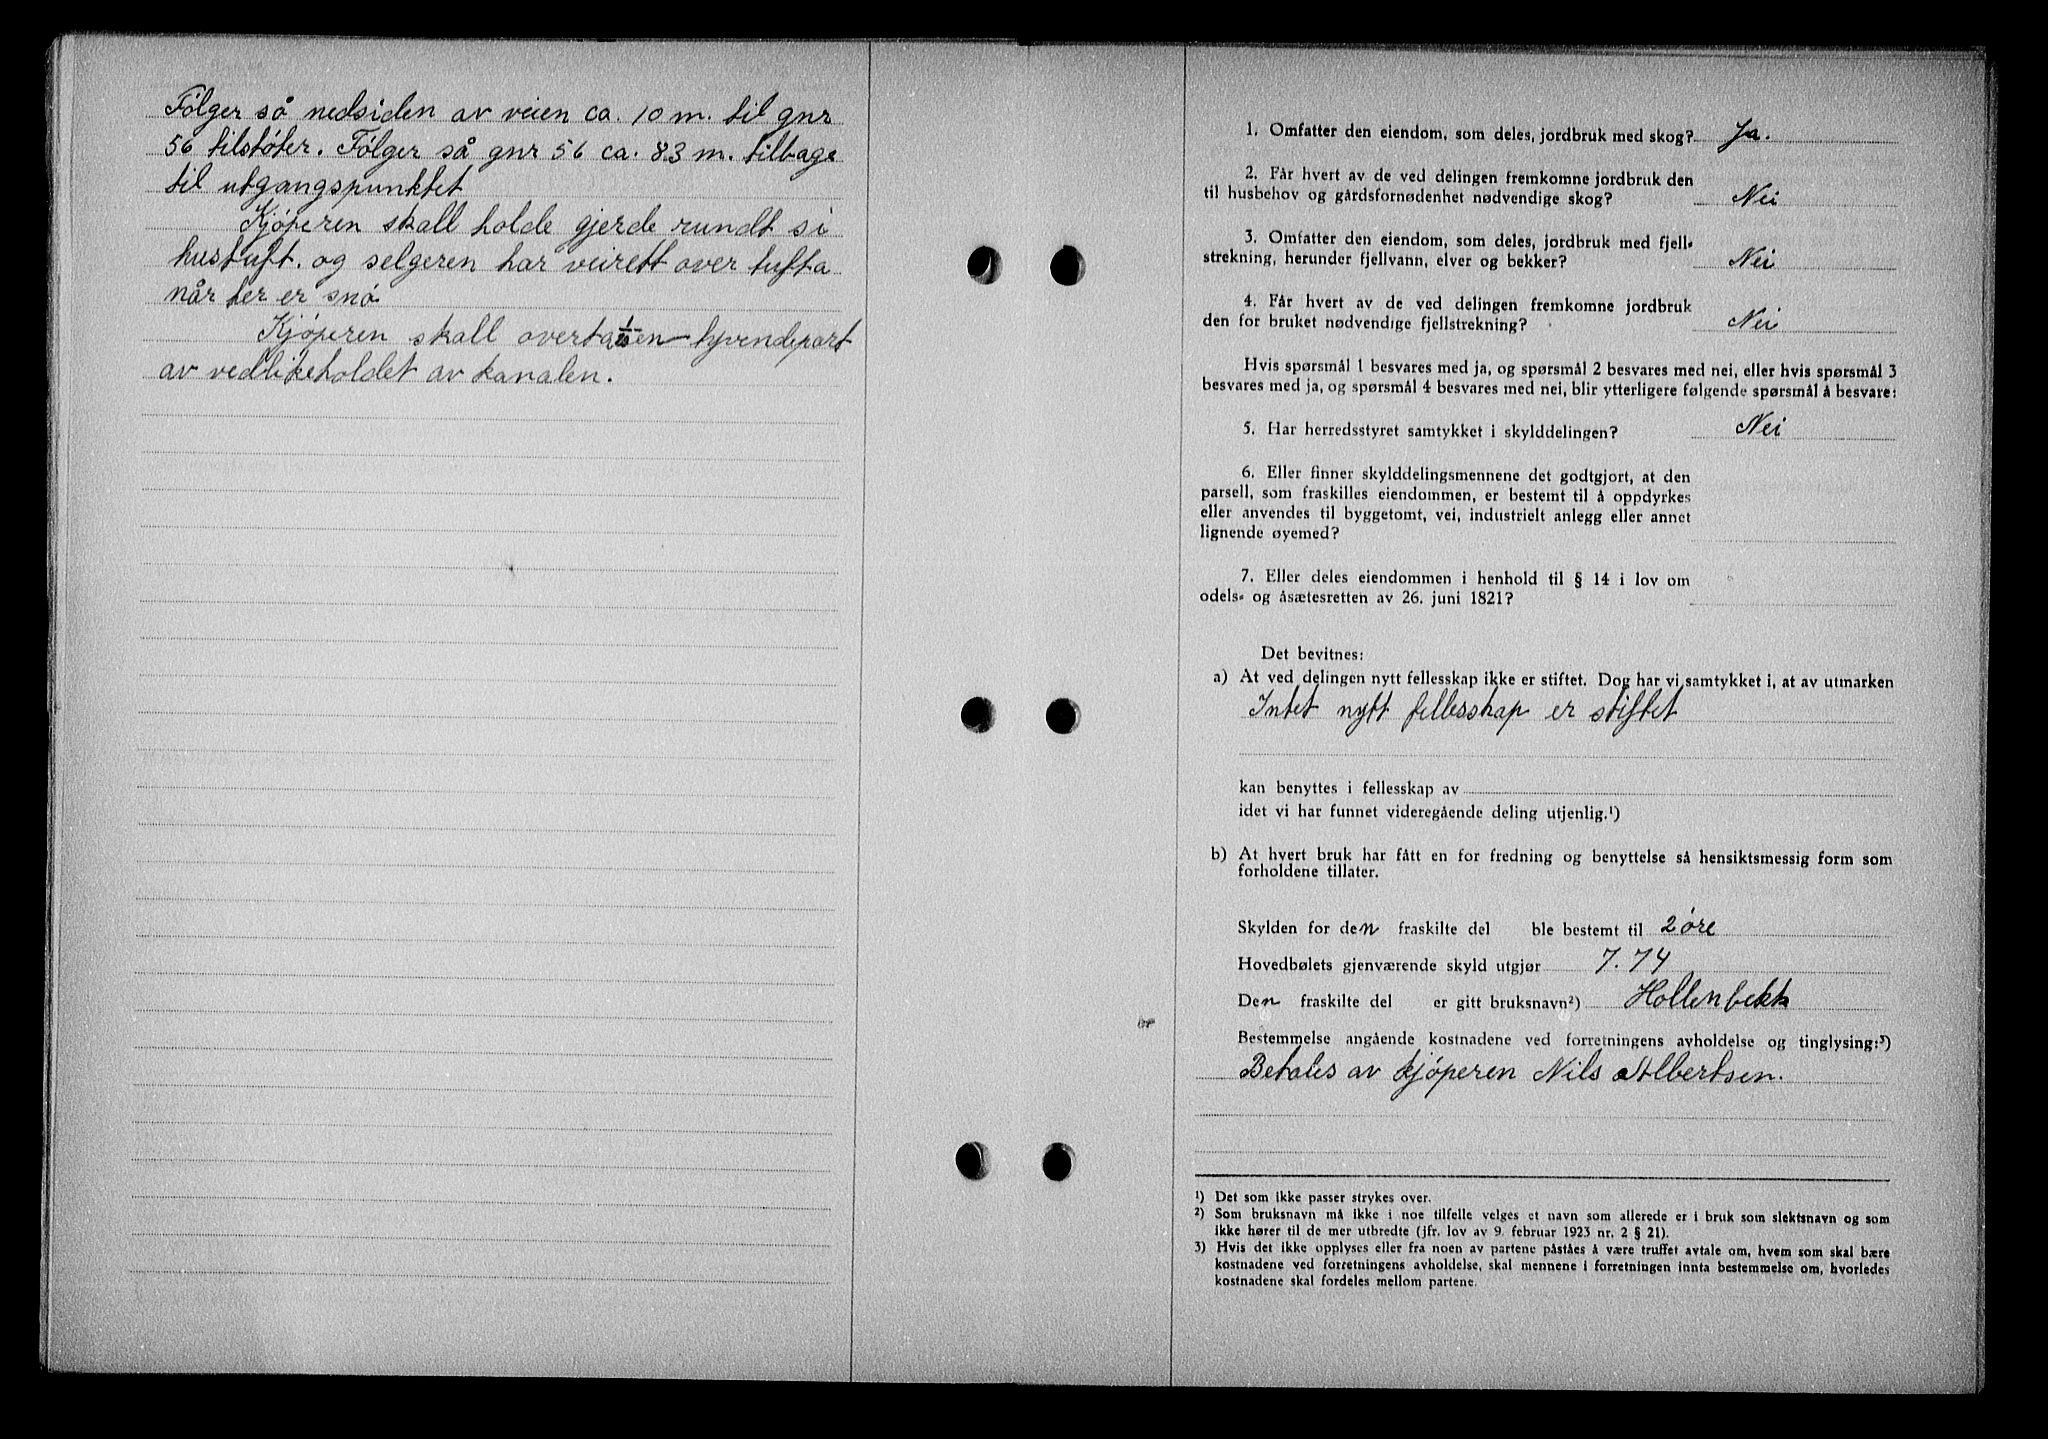 Følger så nedsiden av veien ca. 10 m. til gnr
56 tilstøter. Følger så gnr 56 ca. 83 m. tilbage
til utgangspunktet
Kjøperen skall holde gjerde rundt si
hustuft. og selgeren har veirett over tufta
når der er snø
Kjøperen skall overta 1/20 en tjvendepart
av vedlikeholdet av kanalen.
1. Omfatter den eiendom, som deles, jordbruk med skog? Ja.
2. Får hvert av de ved delingen fremkomne jordbruk den
til husbehov og gårdsfornødenhet nødvendige skog? Nei
3. Omfatter den eiendom, som deles, jordbruk med fjell-
strekning, herunder fjellvann, elver og bekker? Nei
4. Får hvert av de ved delingen fremkomne jordbruk
den for bruket nødvendige fjellstrekning? Nei
Hvis spørsmål 1 besvares med ja, og spørsmål 2 besvares med nei, eller hvis spørsmål 3
besvares med ja, og spørsmål 4 besvares med nei, blir ytterligere følgende spørsmål å besvare:
5. Har herredsstyret samtykket i skylddelingen? Nei
6. Eller finner skylddelingsmennene det godtgjort, at den
parsell, som fraskilles eiendommen, er bestemt til å oppdyrkes
eller anvendes til byggetomt, vei, industrielt anlegg eller annet
lignende øyemed?
7. Eller deles eiendommen i henhold til § 14 i lov om
odels- og åsætesretten av 26. juni 1821?
Det bevitnes:
a) At ved delingen nytt fellesskap ikke er stiftet. Dog har vi samtykket i, at av utmarken
Intet nytt fellesskap er stiftet
kan benyttes i fellesskap av
idet vi har funnet videregående deling utjenlig.¹)
b) At hvert bruk har fått en for fredning og benyttelse så hensiktsmessig form som
forholdene tillater.
Skylden for den fraskilte del ble bestemt til 2 øre
Hovedbølets gjenværende skyld utgjør 7.74
Den fraskilte del er gitt bruksnavn²) Hollenbekk
Bestemmelse angående kostnadene ved forretningens avholdelse og tinglysing:³)
Betales av kjøperen Nils Albertsen.
¹) Det som ikke passer strykes over.
²) Som bruksnavn må ikke i noe tilfelle velges et navn som allerede er i bruk som slektsnavn og som
ikke hører til de mer utbredte (jfr. lov av 9. februar 1923 nr. 2 § 21).
3) Hvis det ikke opplyses eller fra noen av partene påståes å være truffet avtale om, hvem som skal bære
kostnadene ved forretningens avholdelse, skal mennene i forretningen innta bestemmelse om, hvorledes
kostnadene skal fordeles mellom partene.